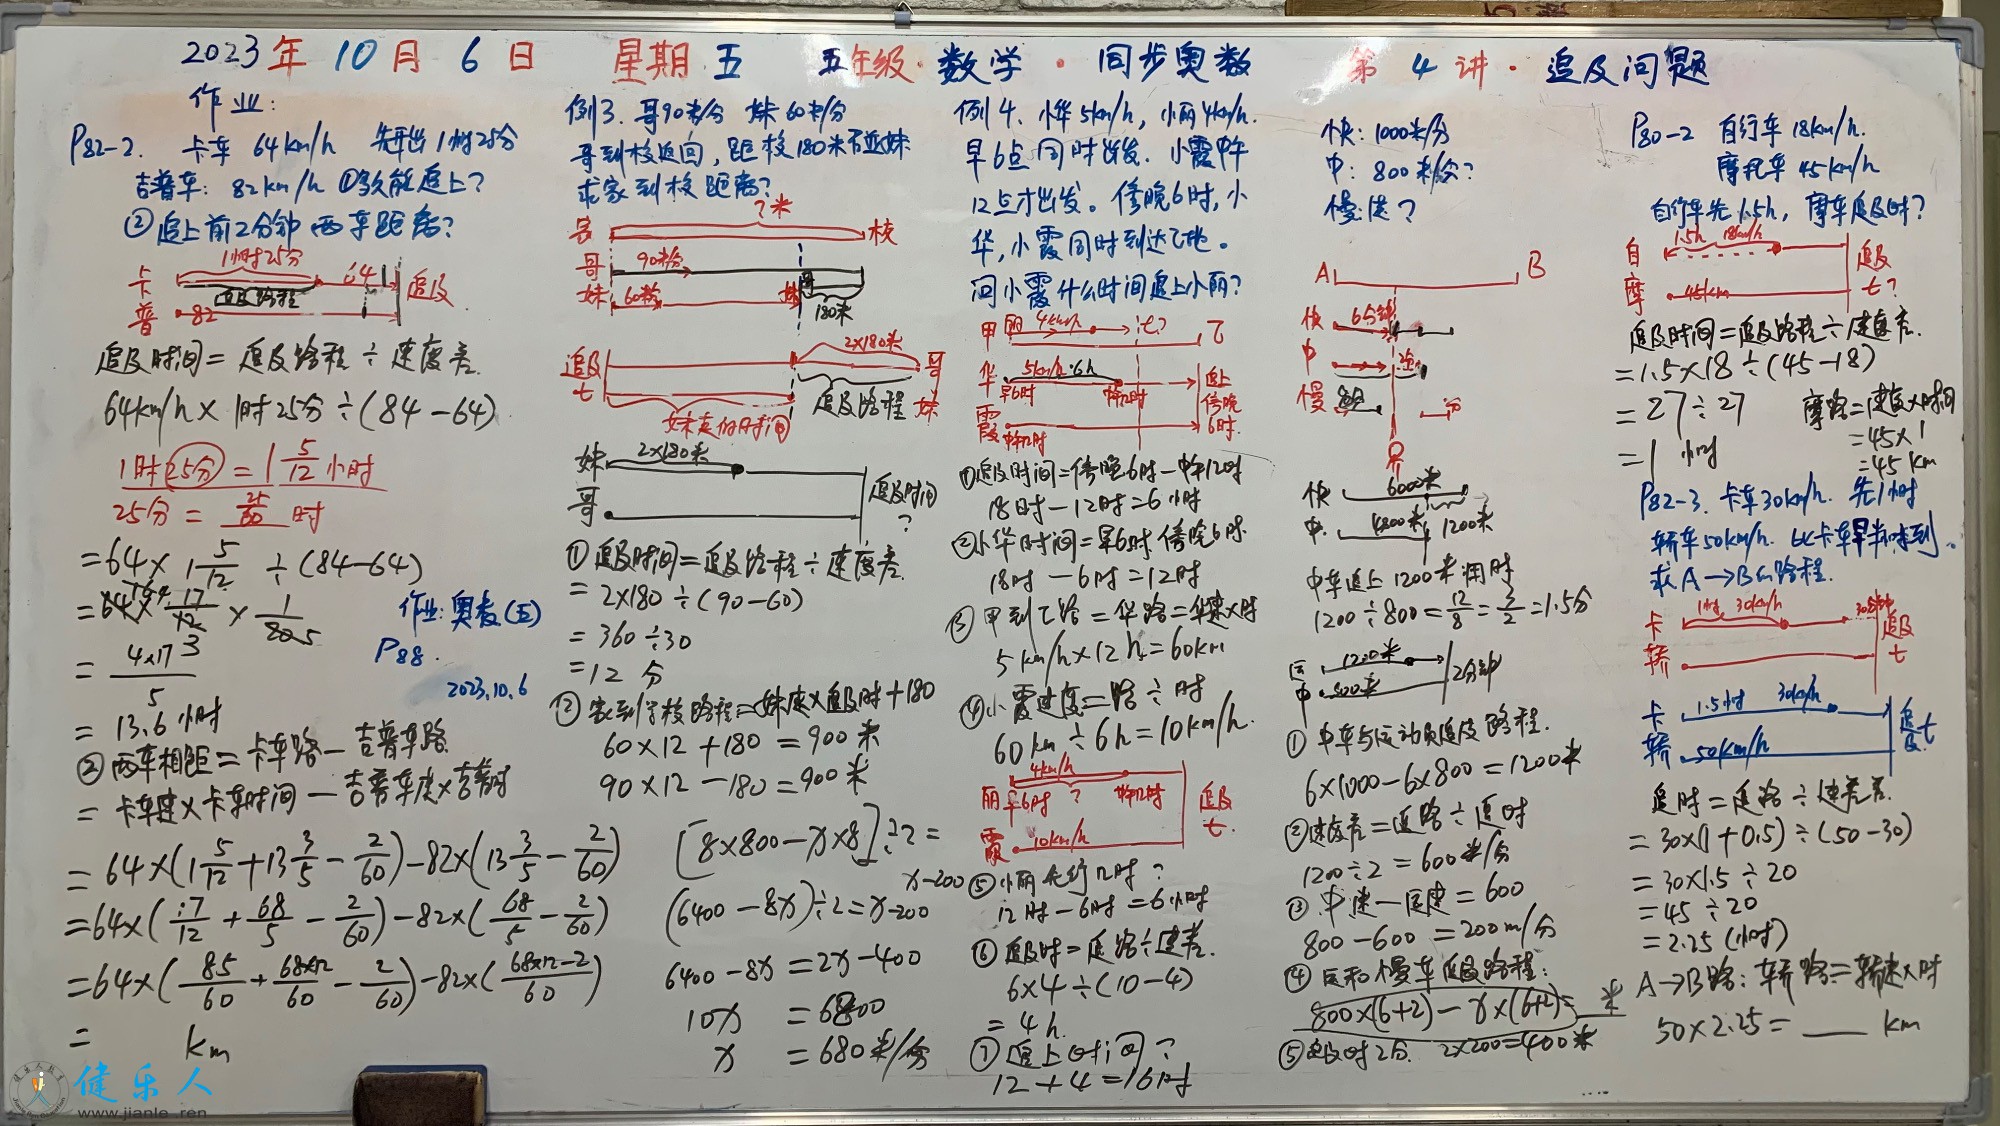 2023年10月6日 星期五 五年级·数学·同步奥数 第4讲·追及问题
作业:
P82-2. 卡车 64km/h 先开出1小时25分
吉普车: 82km/h ①多久能追上?
②追上前2分钟两车距离?
1小时25分 64
卡
追及路程 追及
普 82
追及时间=追及路程÷速度差.
64km/h×1时25分÷(84-64)
1时25分=1 5/12 小时
25分=25/60时
=64×1 5/12÷(84-64)
=64×17/12×1/20
=4×17/5
=13.6小时
作业:奥数(五)
P88.
2023.10.6
②两车相距=卡车路-吉普车路
=卡车速×卡车时间-吉普车速×吉普时
=64×(1 5/12+13 3/5-2/60)-82×(13 3/5-2/60)
=64×(17/12+68/5-2/60)-82×(68/5-2/60)
=64×(85/60+68×12/60-2/60)-82×(68×12-2/60)
= km
例3. 哥90米/分 妹60米/分
哥到校返回,距校180米不追妹
求家到校距离?
?米
家 校
哥 90米/分 哥
妹 60米/分 妹 180米
2×180米
追及 哥
t 追及路程 妹
妹走的时间
妹 2×180米
哥 追及时间?
①追及时间=追及路程÷速度差.
=2×180÷(90-60)
=360÷30
=12分
②家到学校路程=妹速×追及时+180
60×12+180=900米
90×12-180=900米
[8×800-x×8]÷2=
x-200
(6400-8x)÷2=x-200
6400-8x=2x-400
10x =6800
x =680米/分
例4. 小华5km/h, 小丽4km/h.
早6点同时出发. 小霞中午
12点才出发。傍晚6时,小
华,小霞同时到达乙地。
问小霞什么时间追上小丽?
甲 丽 4km/h t? 乙
华 5km/h·6h 追上
早6时 中午12时 傍晚
霞 中午12时 6时.
①追及时间=傍晚6时-中午12时
18时-12时=6小时
②小华时间=早6时 傍晚6时.
18时-6时=12时
③甲到乙路=华路=华速×时
5km/h×12h=60km
④小霞速度=路÷时
60km÷6h=10km/h.
4km/h
丽 早6时 ? 中午12时 追及
霞 10km/h t.
⑤小丽先行几时?
12时-6时=6小时
⑥追及时=追路÷速差.
6×4÷(10-4)
=4h.
⑦追上时间?
12+4=16时
快: 1000米/分
中: 800米/分?
慢: 速?
A B
快 6分钟
中 2分
慢 8分
快 6000米
中 4800米 1200米
中车追上1200米用时
1200÷800=12/8=3/2=1.5分
1200米
中 800米 2分钟
①中车与运动员追及路程.
6×1000-6×800=1200米
②速度差=追路÷追时
1200÷2=600米/分
③中速-运速=600
800-600=200m/分
④运和慢车追及路程:
800×(6+2)-x×(6+2)= 米
⑤追及时2分. 2×200=400米
P80-2 自行车18km/h.
摩托车45km/h
自行车先1.5h, 摩车追及时?
1.5h 18km/h
自 追及
摩 45km t?
追及时间=追及路程÷速度差.
=1.5×18÷(45-18)
=27÷27
=1小时
摩路=速度×时间
=45×1
=45km
P82-3. 卡车30km/h. 先1小时
轿车50km/h. 比卡车早半小时到.
求A→B的路程.
1小时 30km/h 30分钟
卡 追及
轿 t
卡 1.5小时 30km/h 追及
轿 50km/h t
追时=追路÷速度差.
=30×(1+0.5)÷(50-30)
=30×1.5÷20
=45÷20
=2.25(小时)
A→B路: 轿路=轿速×时
50×2.25= km
健乐人
www.jianle.ren